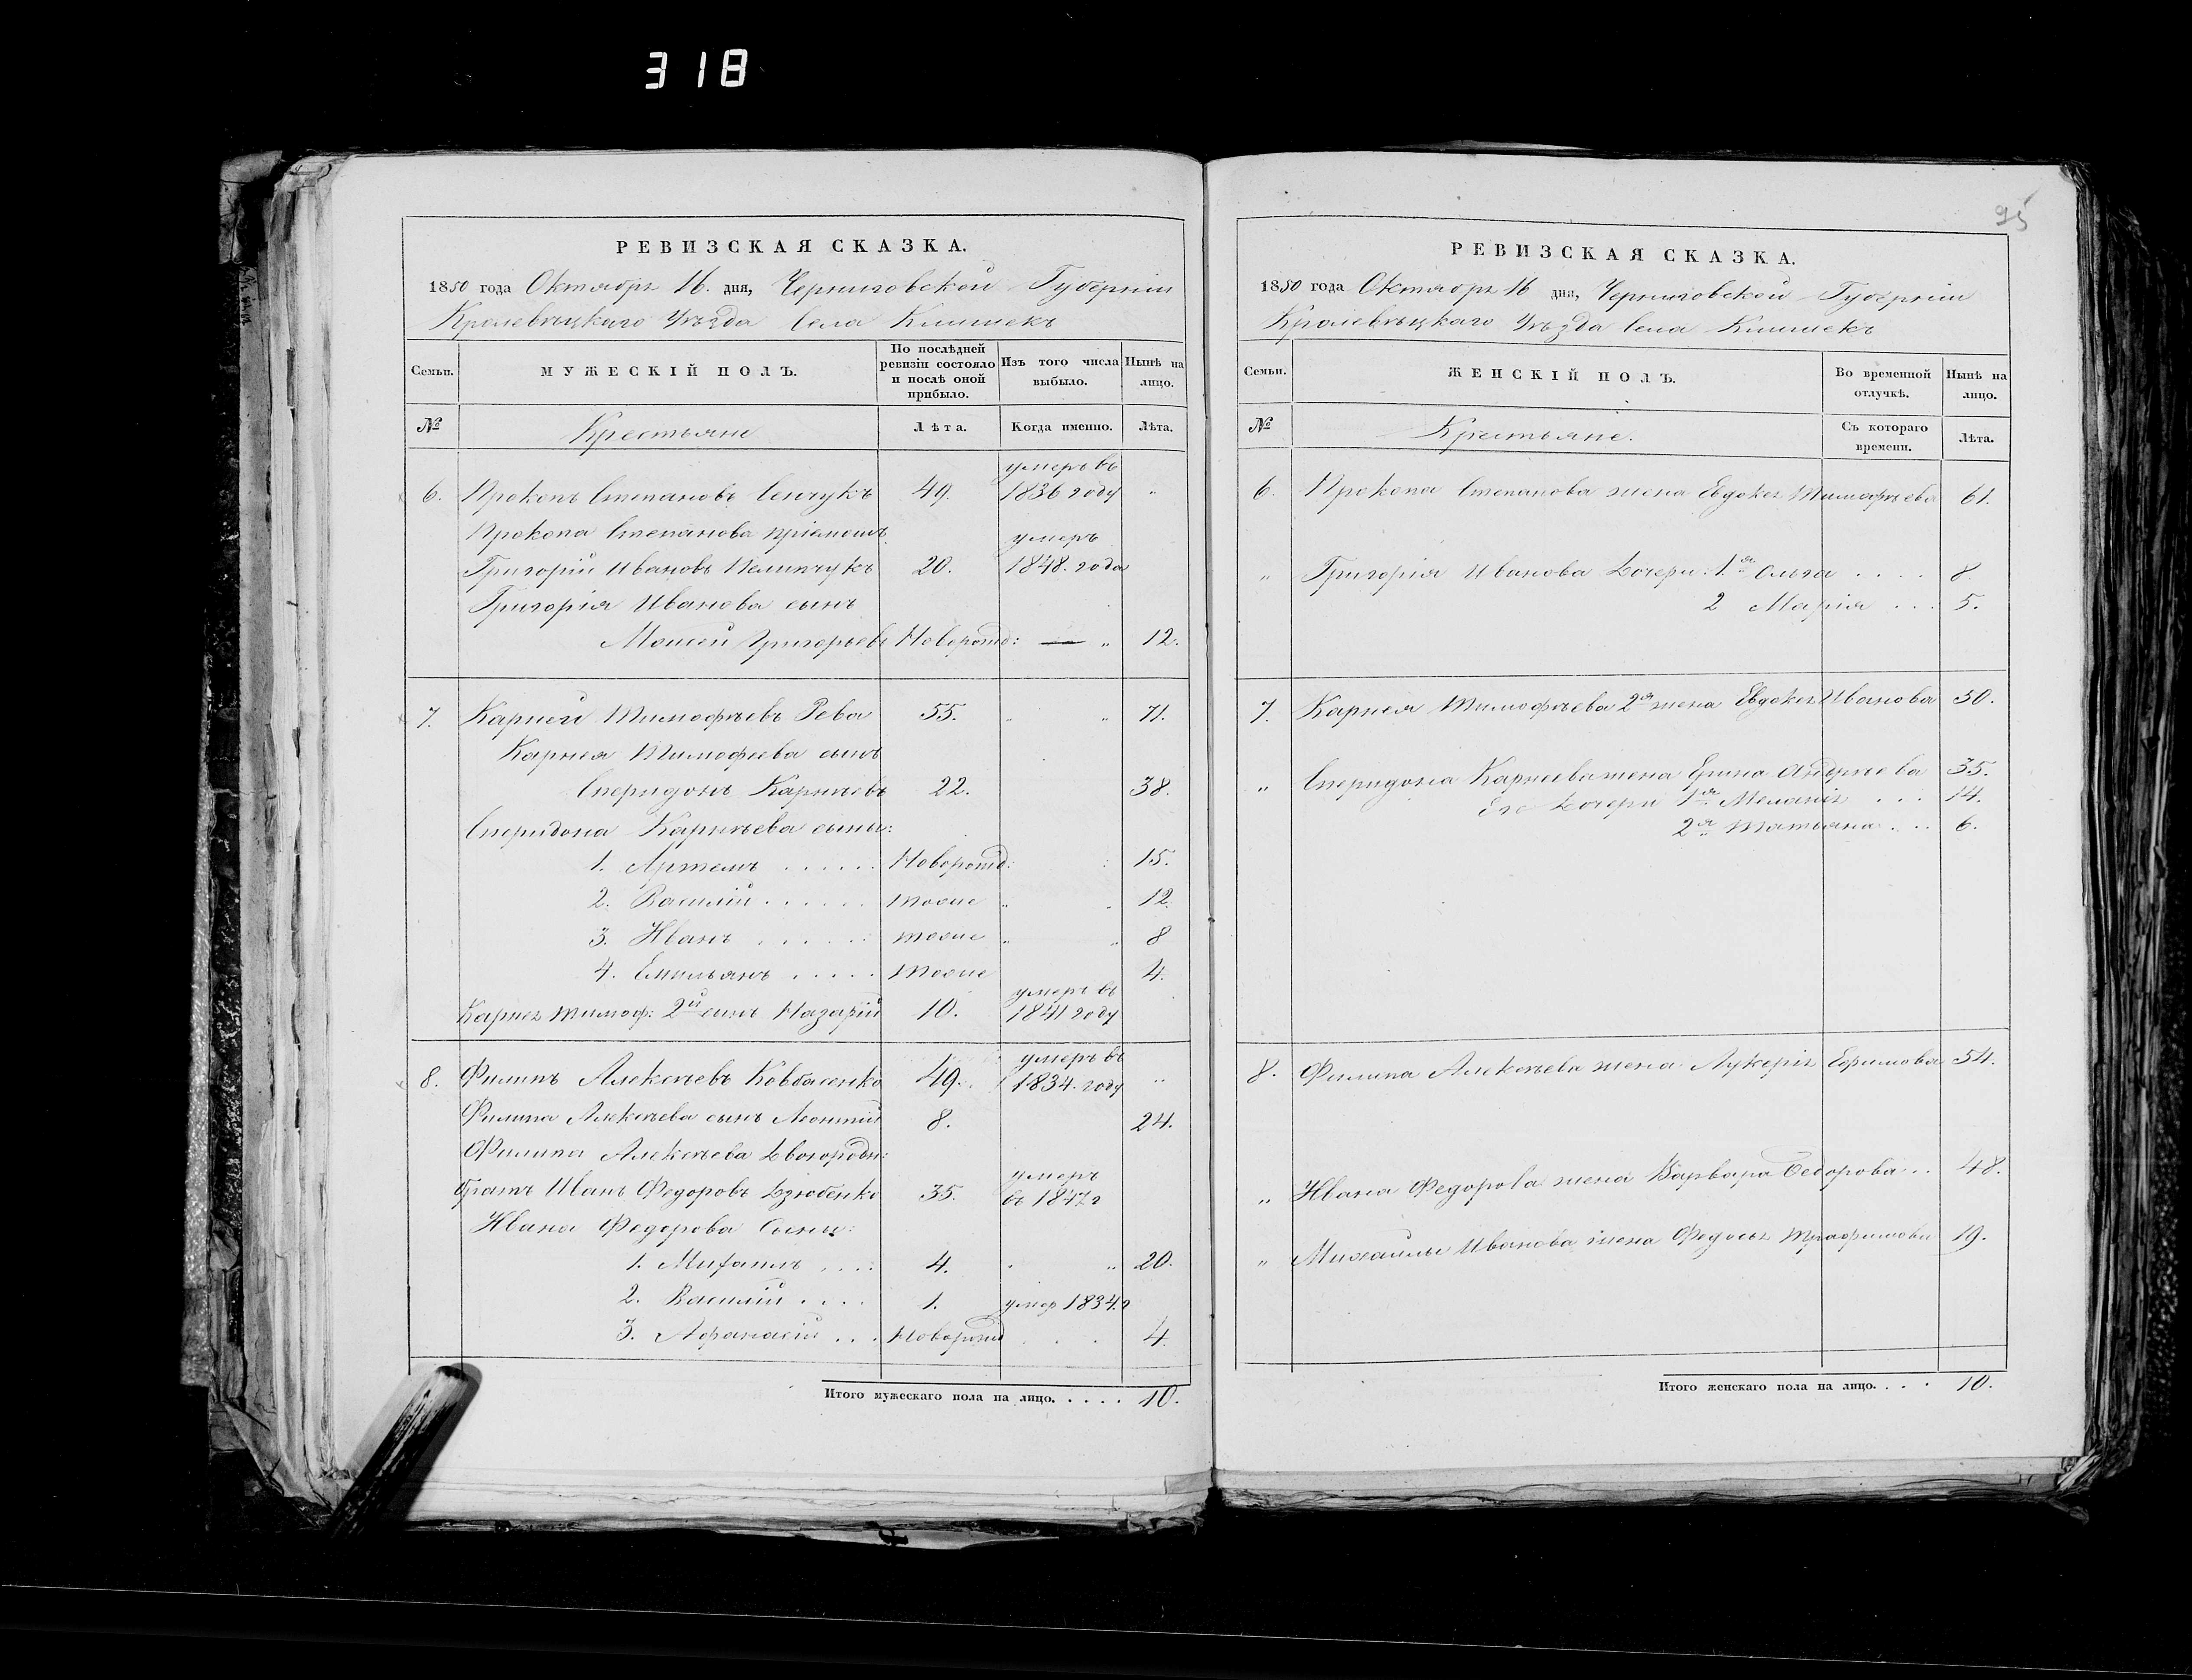 318
РЕВИЗСКАЯ СКАЗКА.
1850 года Октября 16. дня, Черниговской Губерніи
Кролевѣцкаго Уѣзда Села Клишекъ
Семьи.
МУЖЕСКІЙ ПОЛЪ.
По послѣдней ревизіи состояло и послѣ оной прибыло.
Изъ того числа выбыло.
Нынѣ на лицо.
№ Крестьяне Лѣта. Когда именно. Лѣта.
6. Прокопъ Степановъ Сенчукъ 49. умеръ въ 1836 году "
Прокопа Степанова пріемышъ
Григорій Ивановъ 20. умеръ 1848. года
Григорія Иванова сынъ
Моисей Григорьевъ Новорожд: — " 12.
7. Карней Тимофѣевъ Рева 55. " " 71.
Карнея Тимофеева сынъ
Спиридонъ Карнѣевъ 22. 38.
Спиридона Карнѣева сыны:
1. Артемъ ...... Новорожд: 15.
2. Василій ...... тоже " 12.
3. Иванъ ...... тоже " " 8
4. Емильянъ ..... тоже 4.
Карнея Тимоф: 2й сынъ Назарій 10. умеръ въ 1841 году
8. Филипъ Алексѣевъ Ковбасенко 49. умеръ въ 1834. году "
Филипа Алексѣева сынъ Леонтій 8. 24.
Филипа Алексѣева двоюродн:
братъ Иванъ Федоровъ Дзюбенко 35. умеръ въ 1847 г
Ивана Федорова Сыны:
1. Михаилъ .... 4. " " 20.
2. Василій .... 1. умер 1834. г
3. Афанасій ... Новорожд . . . 4.
Итого мужескаго пола на лицо. .... 10.
95
РЕВИЗСКАЯ СКАЗКА.
1850 года Октября 16 дня, Черниговской Губерніи
Кролевѣцкаго Уѣзда Села Клишекъ
Семьи.
ЖЕНСКІЙ ПОЛЪ.
Во временной отлучкѣ.
Нынѣ на лицо.
№ Крестьяне. Съ котораго времени. Лѣта.
6. Прокопа Степанова жена Евдокея Тимофѣева 61.
" Григорія Иванова дочери: 1.я Ольга .... 8.
2 Марія ... 5.
7. Карнея Тимофѣева 2я жена Евдокея Иванова 50.
" Спиридона Карнеева жена Ерина Андрѣева 35.
Его дочери 1я Меланія ... 14.
2я Татьяна ... 6.
8. Филипа Алексѣева жена Лукерія Ефимова 54.
" Ивана Федорова жена Варвара Федорова .. 48.
" Михаилы Иванова жена Федосья Трофимова 19.
Итого женскаго пола на лицо. ... 10.